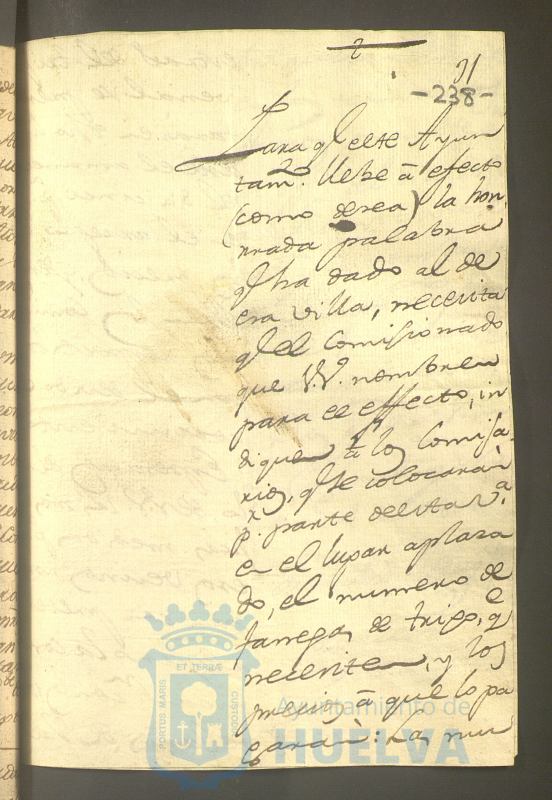 2
91
-238-
Para q.^l este Ayun
tam.^to llebe â efecto
(como desea) la hon-
rrada palabra
q.^e ha dado al de
esa villa, necesita
q.^e el Comisionado
que V.V. nombren
para el effecto, in
diquen â los Comisa-
rios, q.^e se colocaràn
p.^r parte de esta V.^a
en el lugar aplaza
do, el numero de
fanegas de trigo, q.^e
necesiten, y los
precios â que lo pa
garàn: Las mu
PORTUS MARIS
ET TERRÆ
CUSTODIA
Ayuntamiento de
HUELVA